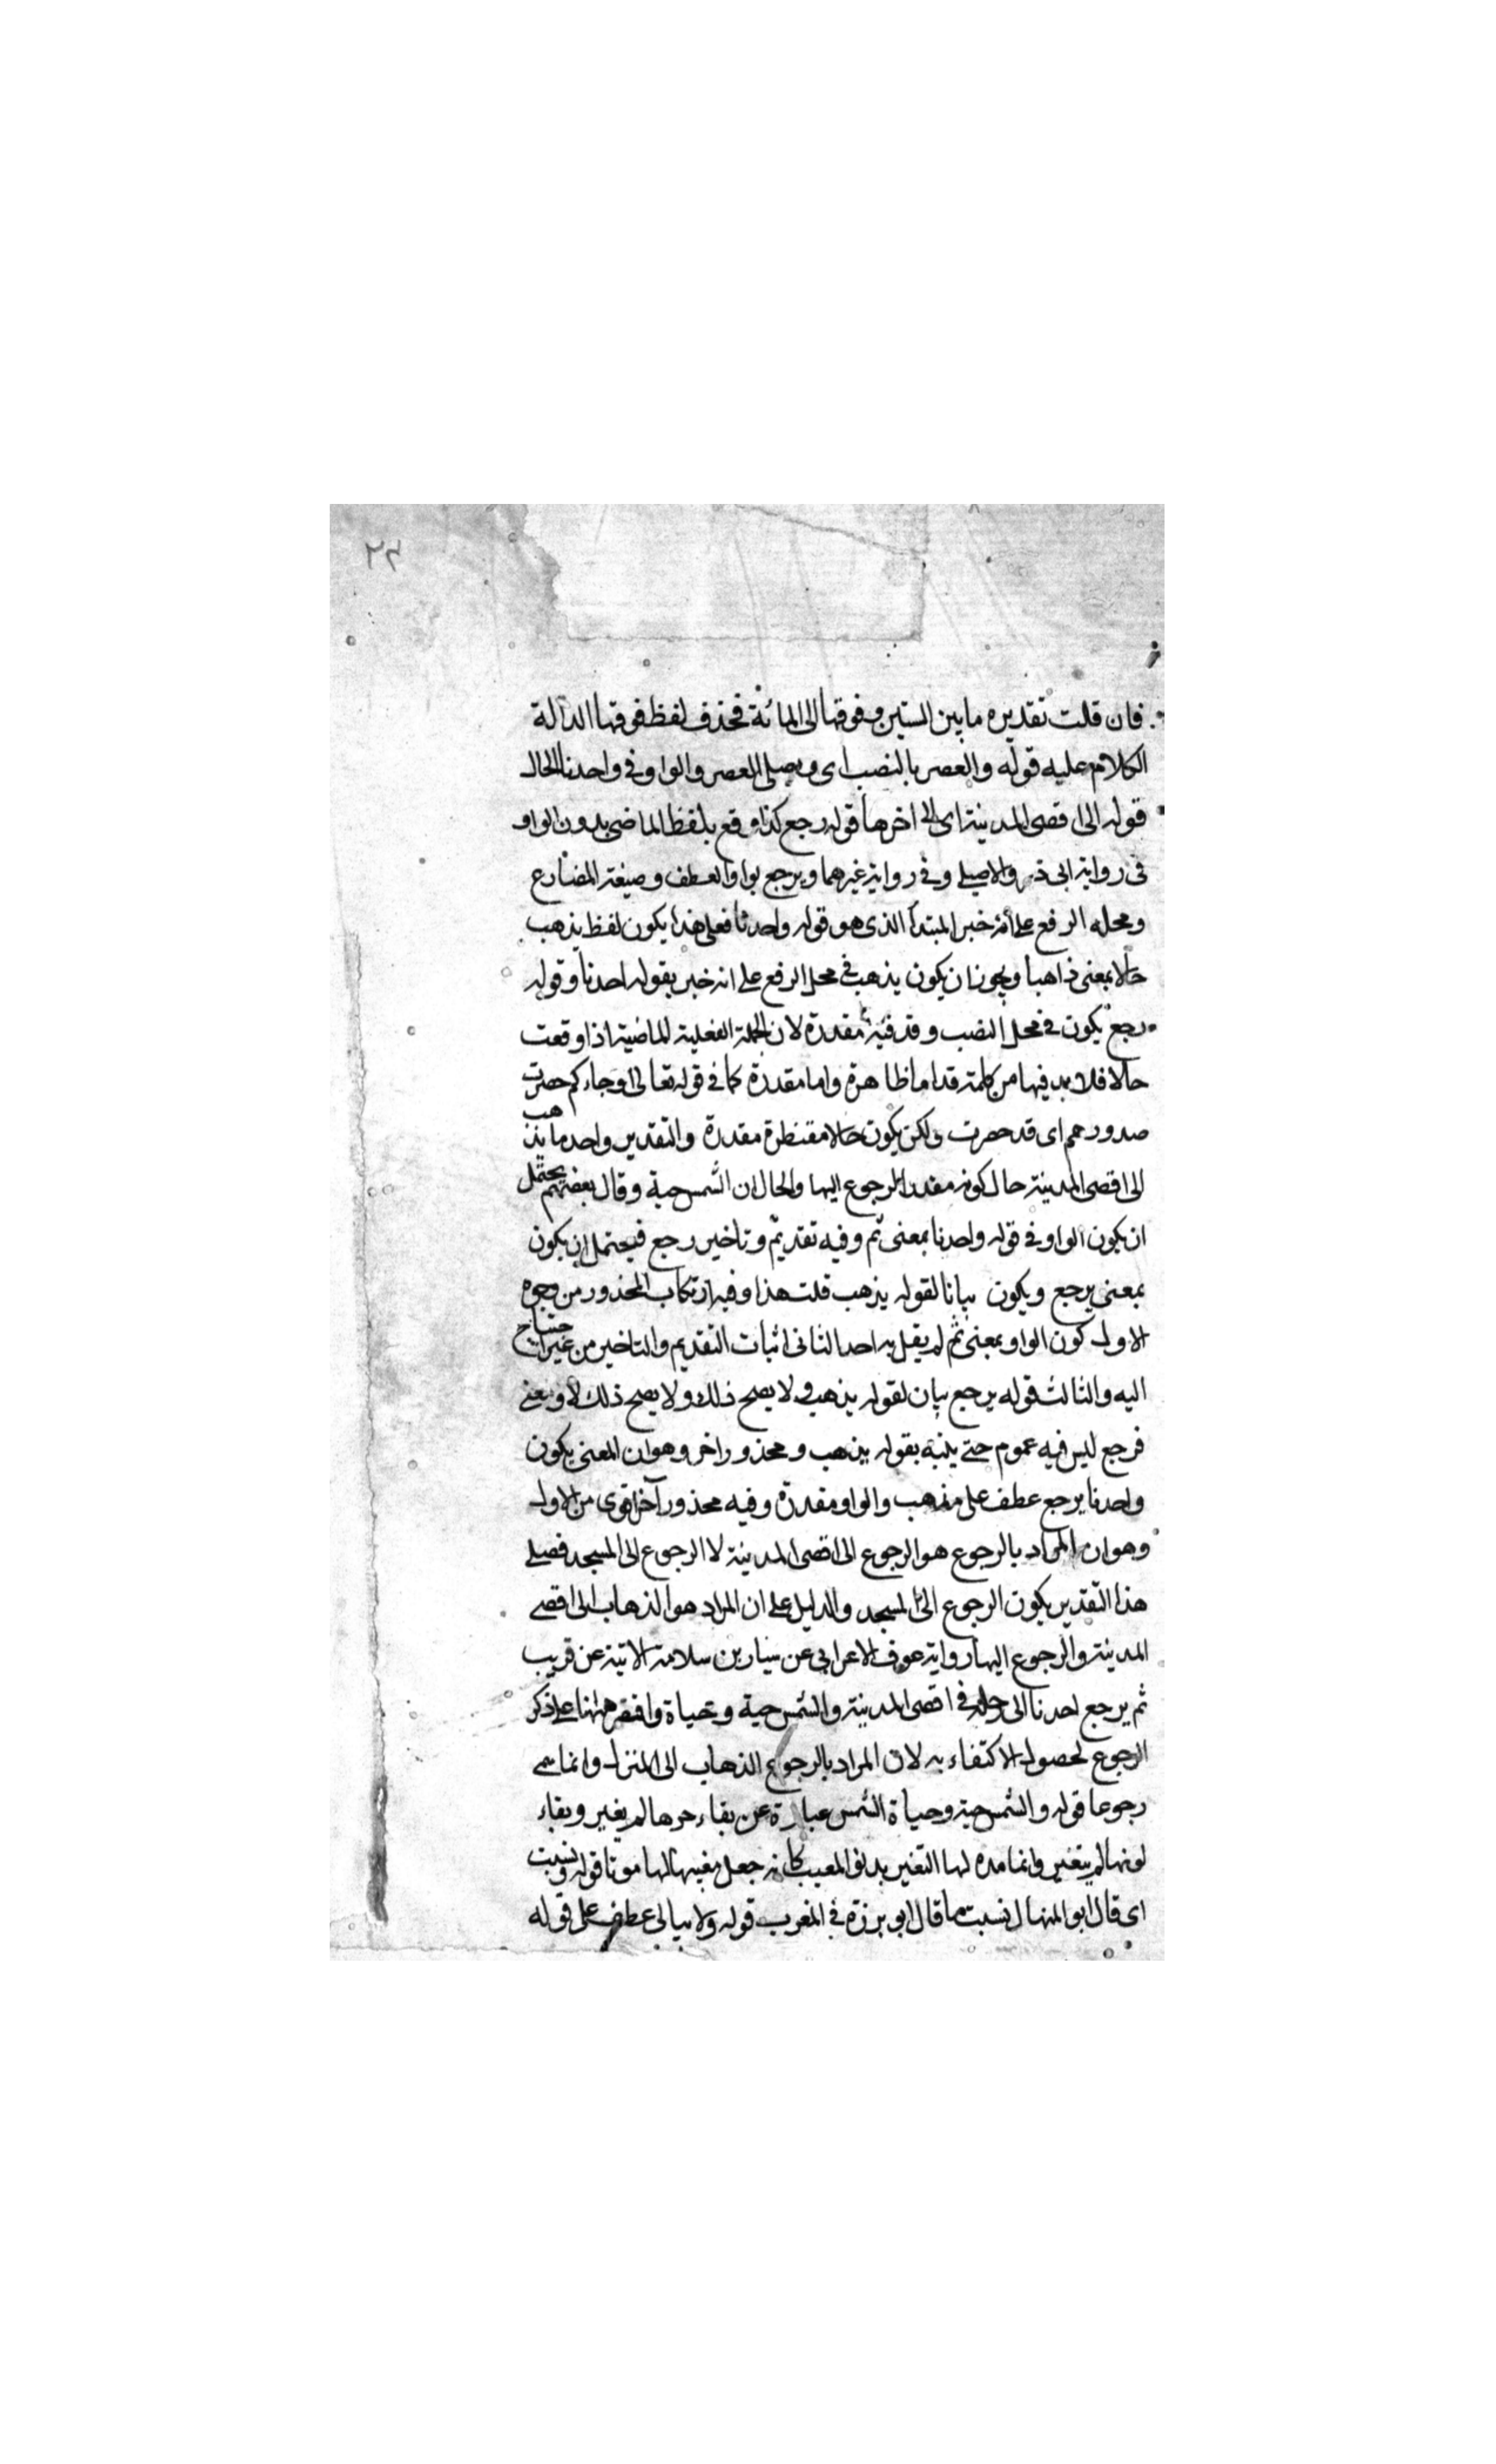 ٢٤
فان قلت تقديره ما بين الستين وفوقها الى المائة فحذف لفظ فوقها الدالة
الكلام عليه قوله والعصر بالنصب اى ويصلى العصر والواو فى واحدنا للحال
قوله الى اقصى المدينة اى الى اخرها قوله رجع كذا وقع بلفظ الماضى بدون الواو
فى رواية ابى ذر والاصيلى وفى رواية غيرهما ويرجع بواو العطف وصيغة المضارع
ومحله الرفع على انه خبر المبتدأ الذى هو قوله واحدنا فعلى هذا يكون لفظ يذهب
حالا بمعنى ذاهبا ويجوز ان يكون يذهب فى محل الرفع على انه خبر بقوله احدنا وقوله
رجع يكون فى محل النصب وقد فيه مقدرة لان الجملة الفعلية الماضية اذا وقعت
حالا فلا بد فيها من كلمة قد اما ظاهرة واما مقدرة كما فى قوله تعالى اوجاءكم حصرت
صدورهم اى قد حصرت ولكن يكون حالا مقنطرة مقدرة والتقدير واحد ما يذهب
الى اقصى المدينة حال كونه مقدرا للرجوع اليها والحال ان الشمس حية وقال بعضهم يحتمل
ان يكون الواو فى قوله واحدنا بمعنى ثم وفيه تقديم وتاخير رجع فيحتمل ان يكون
بمعنى يرجع ويكون بيانا لقوله يذهب قلت هذا وفيه ارتكاب المحذور من وجوه
الاول كون الواو بمعنى ثم لم يقل به احد الثانى اثبات التقديم والتاخير من غير احتياج
اليه والثالث قوله يرجع بيان لقوله يذهب ولا يصح ذلك ولا يصح ذلك لا ويعنى
فرجع ليس فيه عموم حتى يلنبه بقوله يذهب ومحذور اخر وهو ان المعنى يكون
واحدنا يرجع عطف على مذهب والواو مقدرة وفيه محذور آخر اقوى من الاول
وهو ان المراد بالرجوع هو الرجوع الى اقصى المدينة لا الرجوع الى المسجد فصلى
هذا التقدير يكون الرجوع الى المسجد والدليل على ان المراد هو الذهاب الى اقصى
المدينة والرجوع اليها رواية عوف الاعرابى عن سيار بن سلامة الاتية عن قريب
ثم يرجع احدنا الى رحله فى اقصى المدينة والشمس حية وحياة واقتصر ههنا على ذكر
الرجوع لحصول الاكتفاء به لان المراد بالرجوع الذهاب الى المنزل وانما سمى
رجوعا قوله والشمس حية وحياة الشمس عبارة عن بقاء حرها لم يغير وبقاء
لونها لم يتغير وانما مده لها التغير بدنو المغيب كانه جعل مغيبها لها موتا قوله ونسيت
اى قال ابو المنهال نسيت ما قال ابو برزة فى المغرب قوله ولا يبالى عطف على قوله